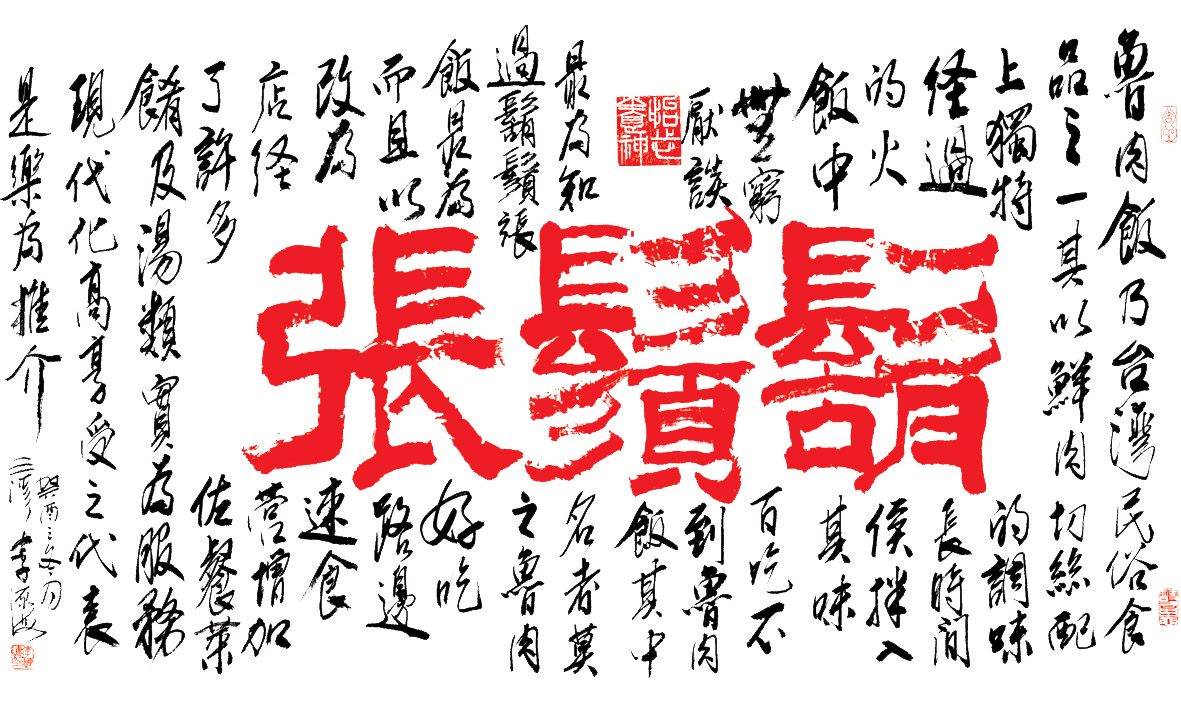 魯肉飯乃台灣民俗食
品之一其以鮮肉切絲配
上獨特的調味
経過長時間
的火侯拌入
飯中其味
無窮百吃不
厭談到魯肉
飯其中
最為知名者莫
過鬍鬚張之魯肉
飯最為好吃
而且以路邊
改為速食
店経營增加
了許多佐餐菜
餚及湯類實為服務
現代化高享受之代表
是樂為推介
鬍鬚張